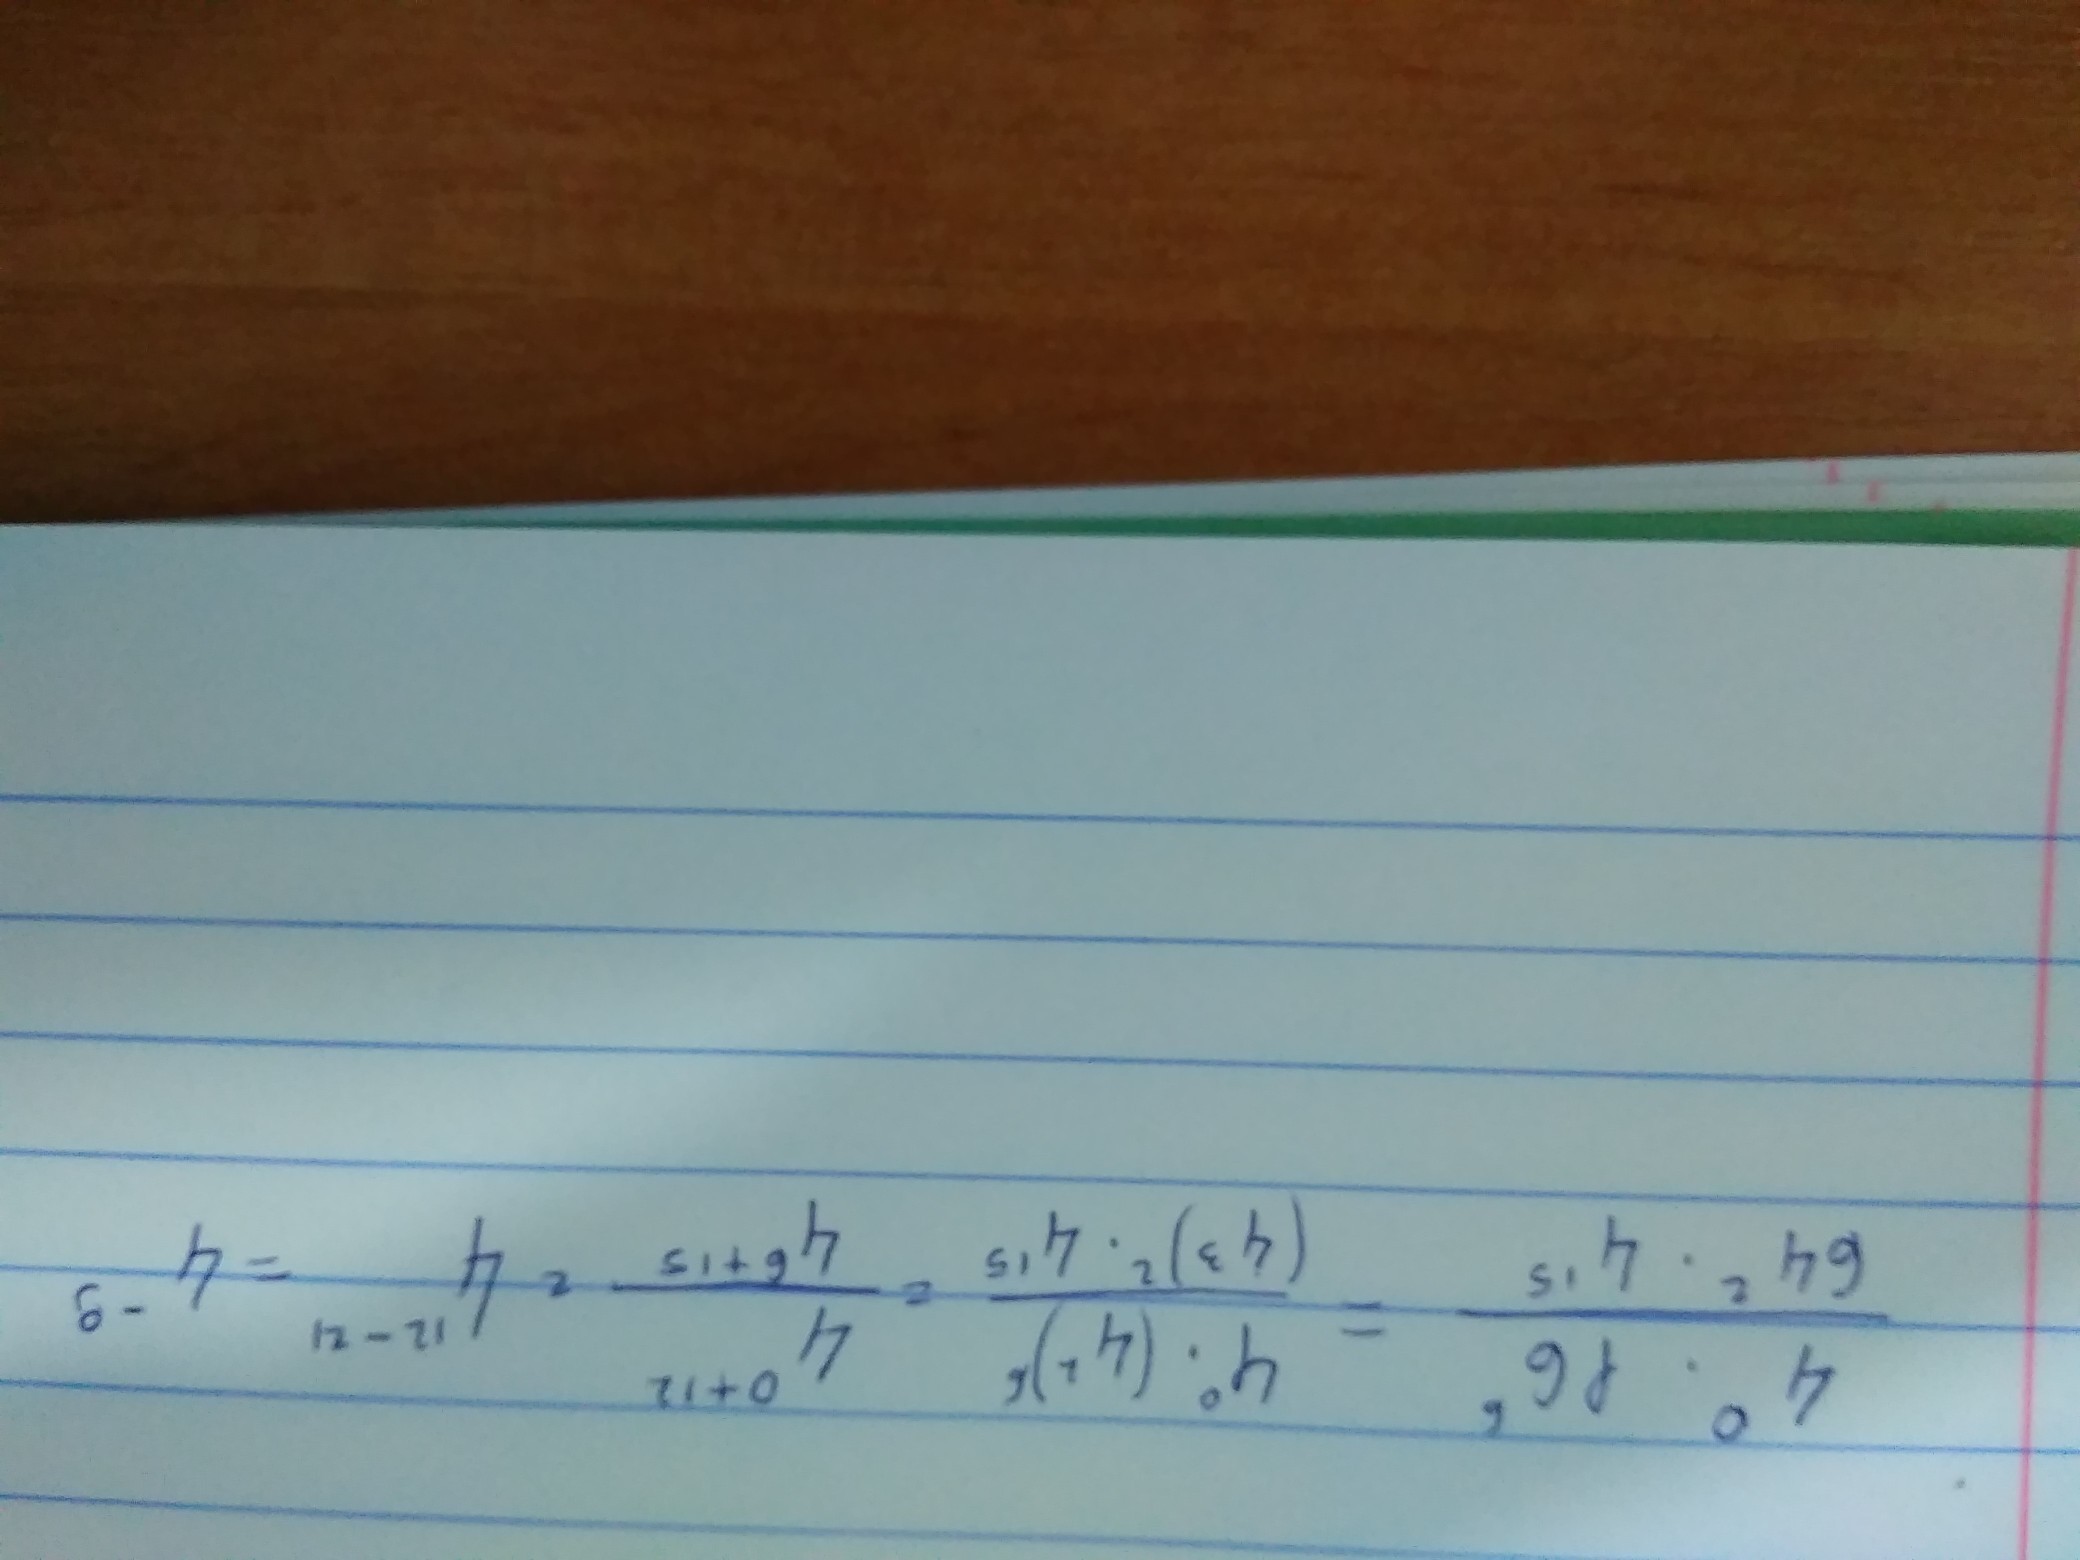 4⁰ · 16⁶ / 64² · 4¹⁵ = 4⁰ · (4²)⁶ / (4³)² · 4¹⁵ = 4⁰⁺¹² / 4⁶⁺¹⁵ = 4¹²⁻²¹ = 4⁻⁹